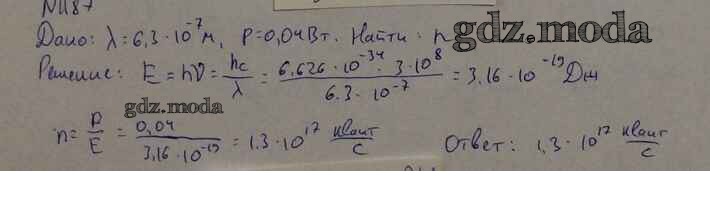 N1187
Дано: λ=6,3·10⁻⁷м, P=0,04Вт. Найти: n gdz.moda
Решение: E = hν = hc/λ = 6.626·10⁻³⁴·3·10⁸/6.3·10⁻⁷ = 3,16·10⁻¹⁹ Дж
gdz.moda
n = P/E = 0,04/3,16·10⁻¹⁹ = 1.3·10¹⁷ квант/с Ответ: 1,3·10¹⁷ квант/с